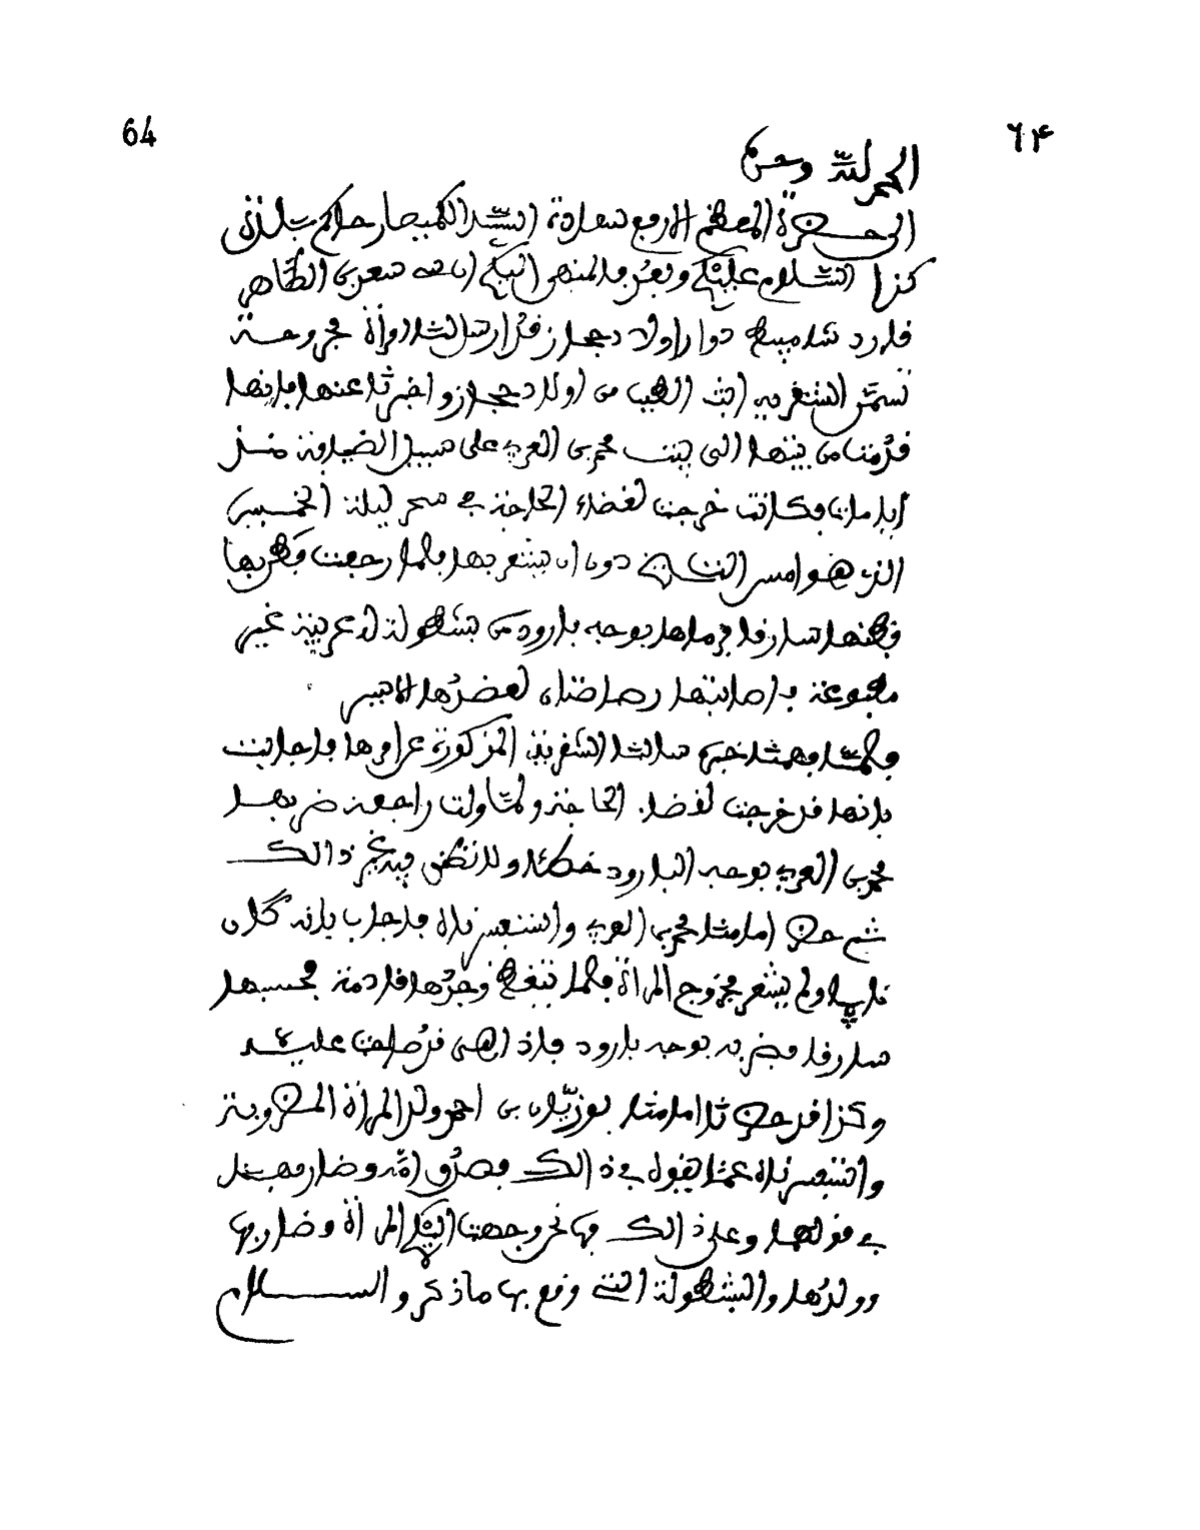 64
٦٤
الحمد لله وحده
الى حضرة المعظم الارفع سعادة السيد الكميصار حاكم بلدة
كذا السلام عليكم وبعد فالمنهى اليكم ان سعد بن الطاهر
قايد دوار اولاد دحمان قد ارسل لنا امراة مجروحة
تسمى السغرية ابنة من اولاد دحمان واخبرنا عنها بانها
قدمت من بيتها الى بيت محمد بن العربي على سبيل الضيافة منذ
ايام فكانت خرجت لقضاء الحاجة في سحر ليلة الخميس
الذي هو امس التاريخ دون ان يشعر بها فلما رجعت وقرب بها
فظنها سارقا فرماها بوجه بارود من بشطولة عربية غير
فاصابتها رصاصتان لعضدها الايسر
فلما فهمنا خبره سالنا السغرية المذكورة عن امرها فاجابت
بانها قد خرجت لقضاء الحاجة ولما ولت راجعة ضربها
محمد بن العربي بوجه البارود خطئا ولا تظن فيه غير ذالك
ثم حضر امامنا محمد بن العربي واستفسرناه فاجاب بانه كان
نايما ولم يشعر بخروج المراة فلما تيقظ وجدها قادمة فحسبها
سارقا فضربها بوجه بارود فاذا هي قد صاحت عليه
وكذا قد حضرنا امامنا بوزيان بن احمد ولد المراة المضروبة
واستفسرناه عما يقول في ذالك فصدق امه وضاربها
في قولهما وعلى ذالك فها نحن وجهنا اليكم المراة وضاربها
وولدها والبشطولة التي وقع بها ما ذكر والسلام